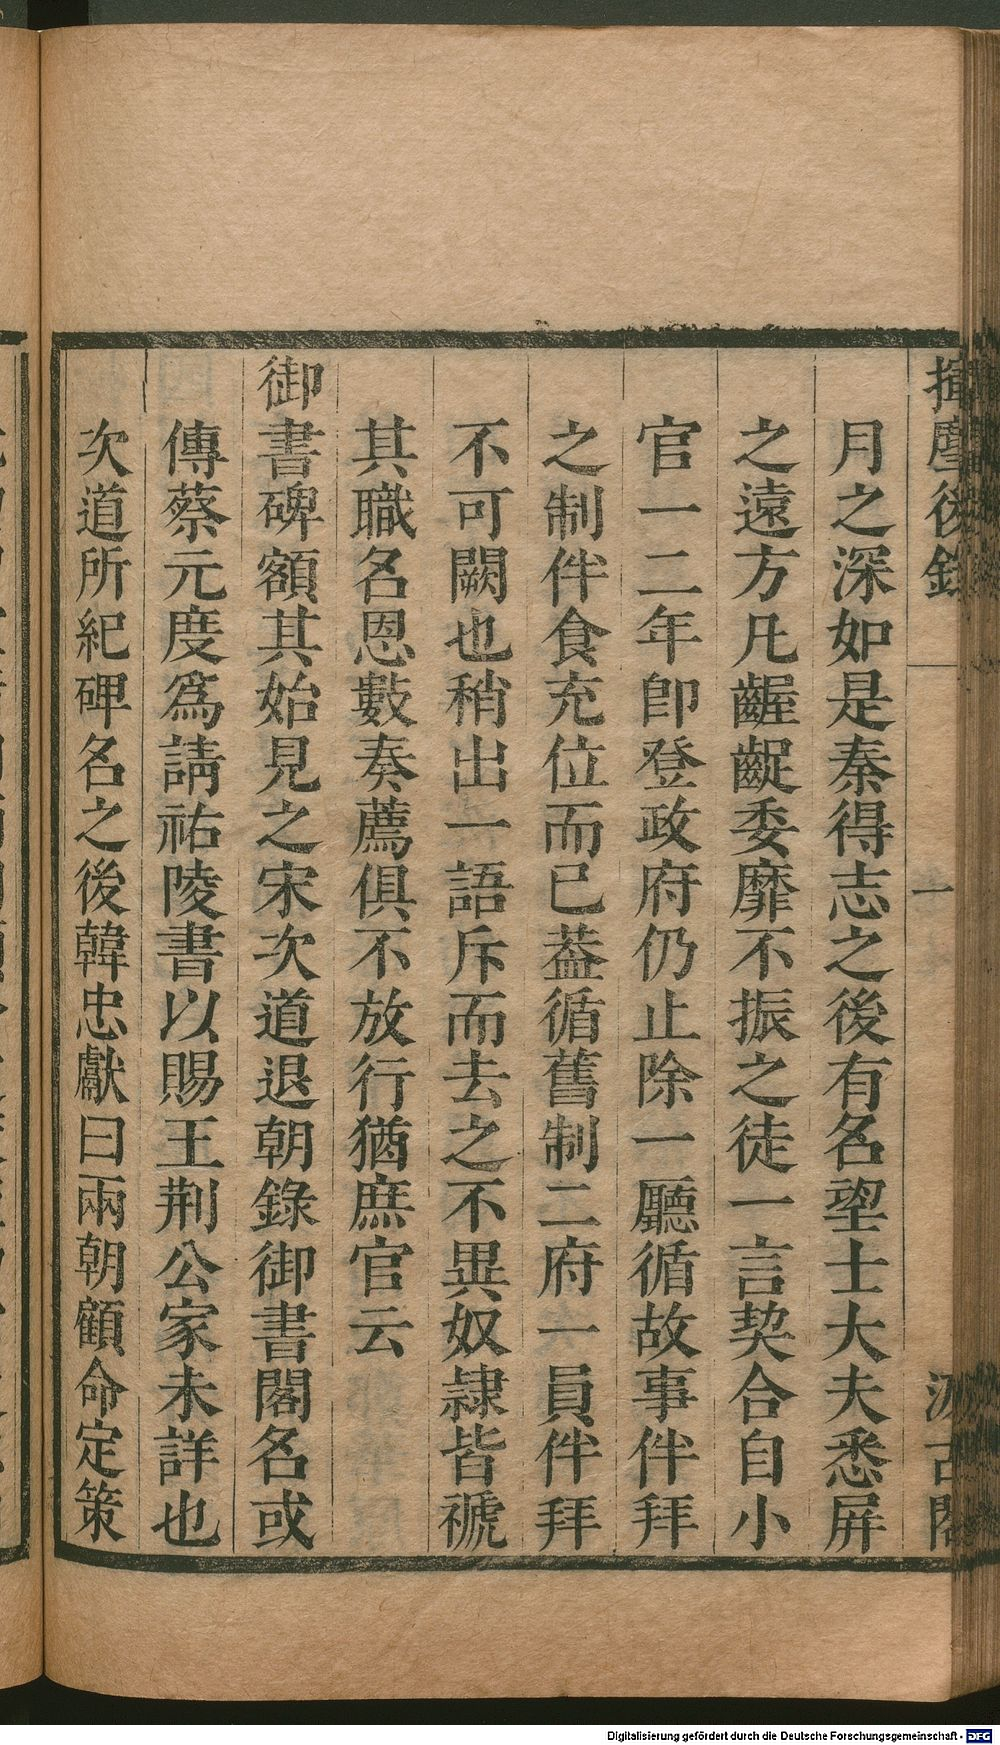 揮麈後錄
一
汲古閣
月之深如是秦得志之後有名望士大夫悉屏
之遠方凡齷齪委靡不振之徒一言契合自小
官一二年卽登政府仍止除一廳循故事伴拜
之制伴食充位而已葢循舊制二府一員伴拜
不可闕也稍出一語斥而去之不異奴隷皆褫
其職名恩數奏薦俱不放行猶庶官云
御書碑額其始見之宋次道退朝錄御書閣名或
傳蔡元度爲請祐陵書以賜王荆公家未詳也
次道所紀碑名之後韓忠獻曰兩朝顧命定策
Digitalisierung gefördert durch die Deutsche Forschungsgemeinschaft - DFG